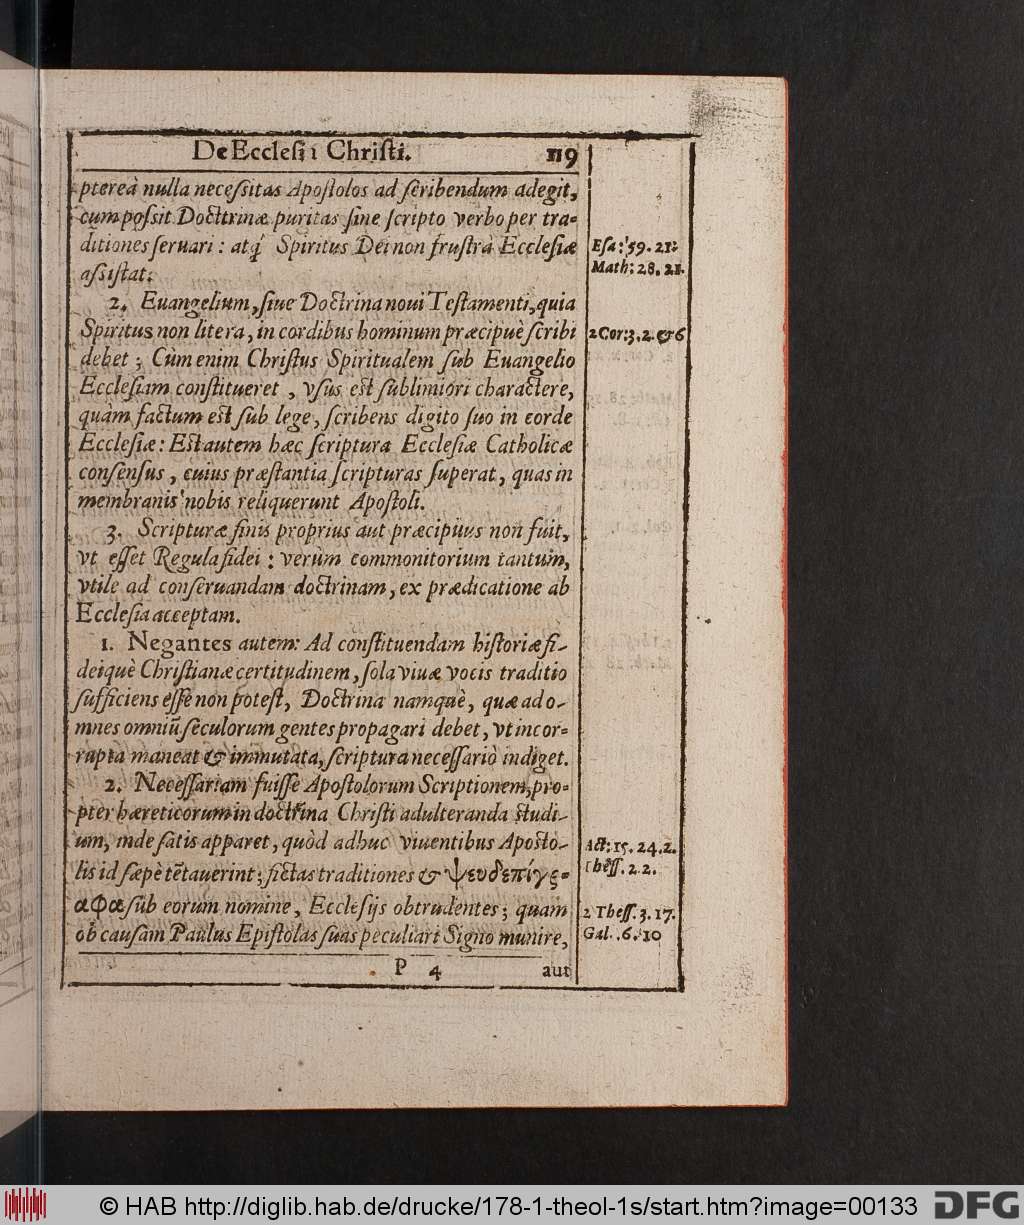 De Ecclesi i Christi. 119
ptereà nulla necessitas Apostolos ad scribendum adegit,
cum possit Doctrinæ puritas sine scripto verbo per tra-
ditiones seruari: atq́ Spiritus Dei non frustrà Ecclesiæ
assistat.
Esa: 59. 21:
Math: 28. 21.
2. Euangelium, siue Doctrina noui Testamenti, quia
Spiritus non litera, in cordibus hominum præcipuè scribi
2 Cor: 3. 2. & 6
debet; Cùm enim Christus Spiritualem sub Euangelio
Ecclesiam constitueret, vsus est sublimiori charactere,
quàm factum est sub lege, scribens digito suo in corde
Ecclesiæ: Est autem hæc scriptura Ecclesiæ Catholicæ
consensus, cuius præstantia scripturas superat, quas in
membranis nobis reliquerunt Apostoli.
3. Scripturæ finis proprius aut præcipuus non fuit,
vt esset Regula fidei: verùm commonitorium tantum,
vtile ad conseruandam doctrinam, ex prædicatione ab
Ecclesia acceptam.
1. Negantes autem: Ad constituendam historiæ fi-
deiquè Christianæ certitudinem, sola viuæ vocis traditio
sufficiens esse non potest, Doctrina namquè, quæ ad o-
mnes omniũ seculorum gentes propagari debet, vt incor-
rupta maneat & immutata, scriptura necessariò indiget.
2. Necessariam fuisse Apostolorum Scriptionem, pro-
pter hæreticorum in doctrina Christi adulteranda studi-
um, inde satis apparet, quòd adhuc viuentibus Aposto-
lis id sæpè tẽtauerint; fictas traditiones & ψευδεπίγρ-
Act: 15. 24. 2.
Thess. 2. 2.
αφα sub eorum nomine, Ecclesijs obtrudentes; quam
ob causam Paulus Epistolas suas peculiari Signo munire,
2 Thess. 3. 17.
Gal. 6. 10
P 4 aut
© HAB http://diglib.hab.de/drucke/178-1-theol-1s/start.htm?image=00133 DFG